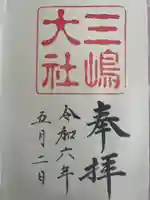 奉拝
三嶋
大社
令和六年
五月二日